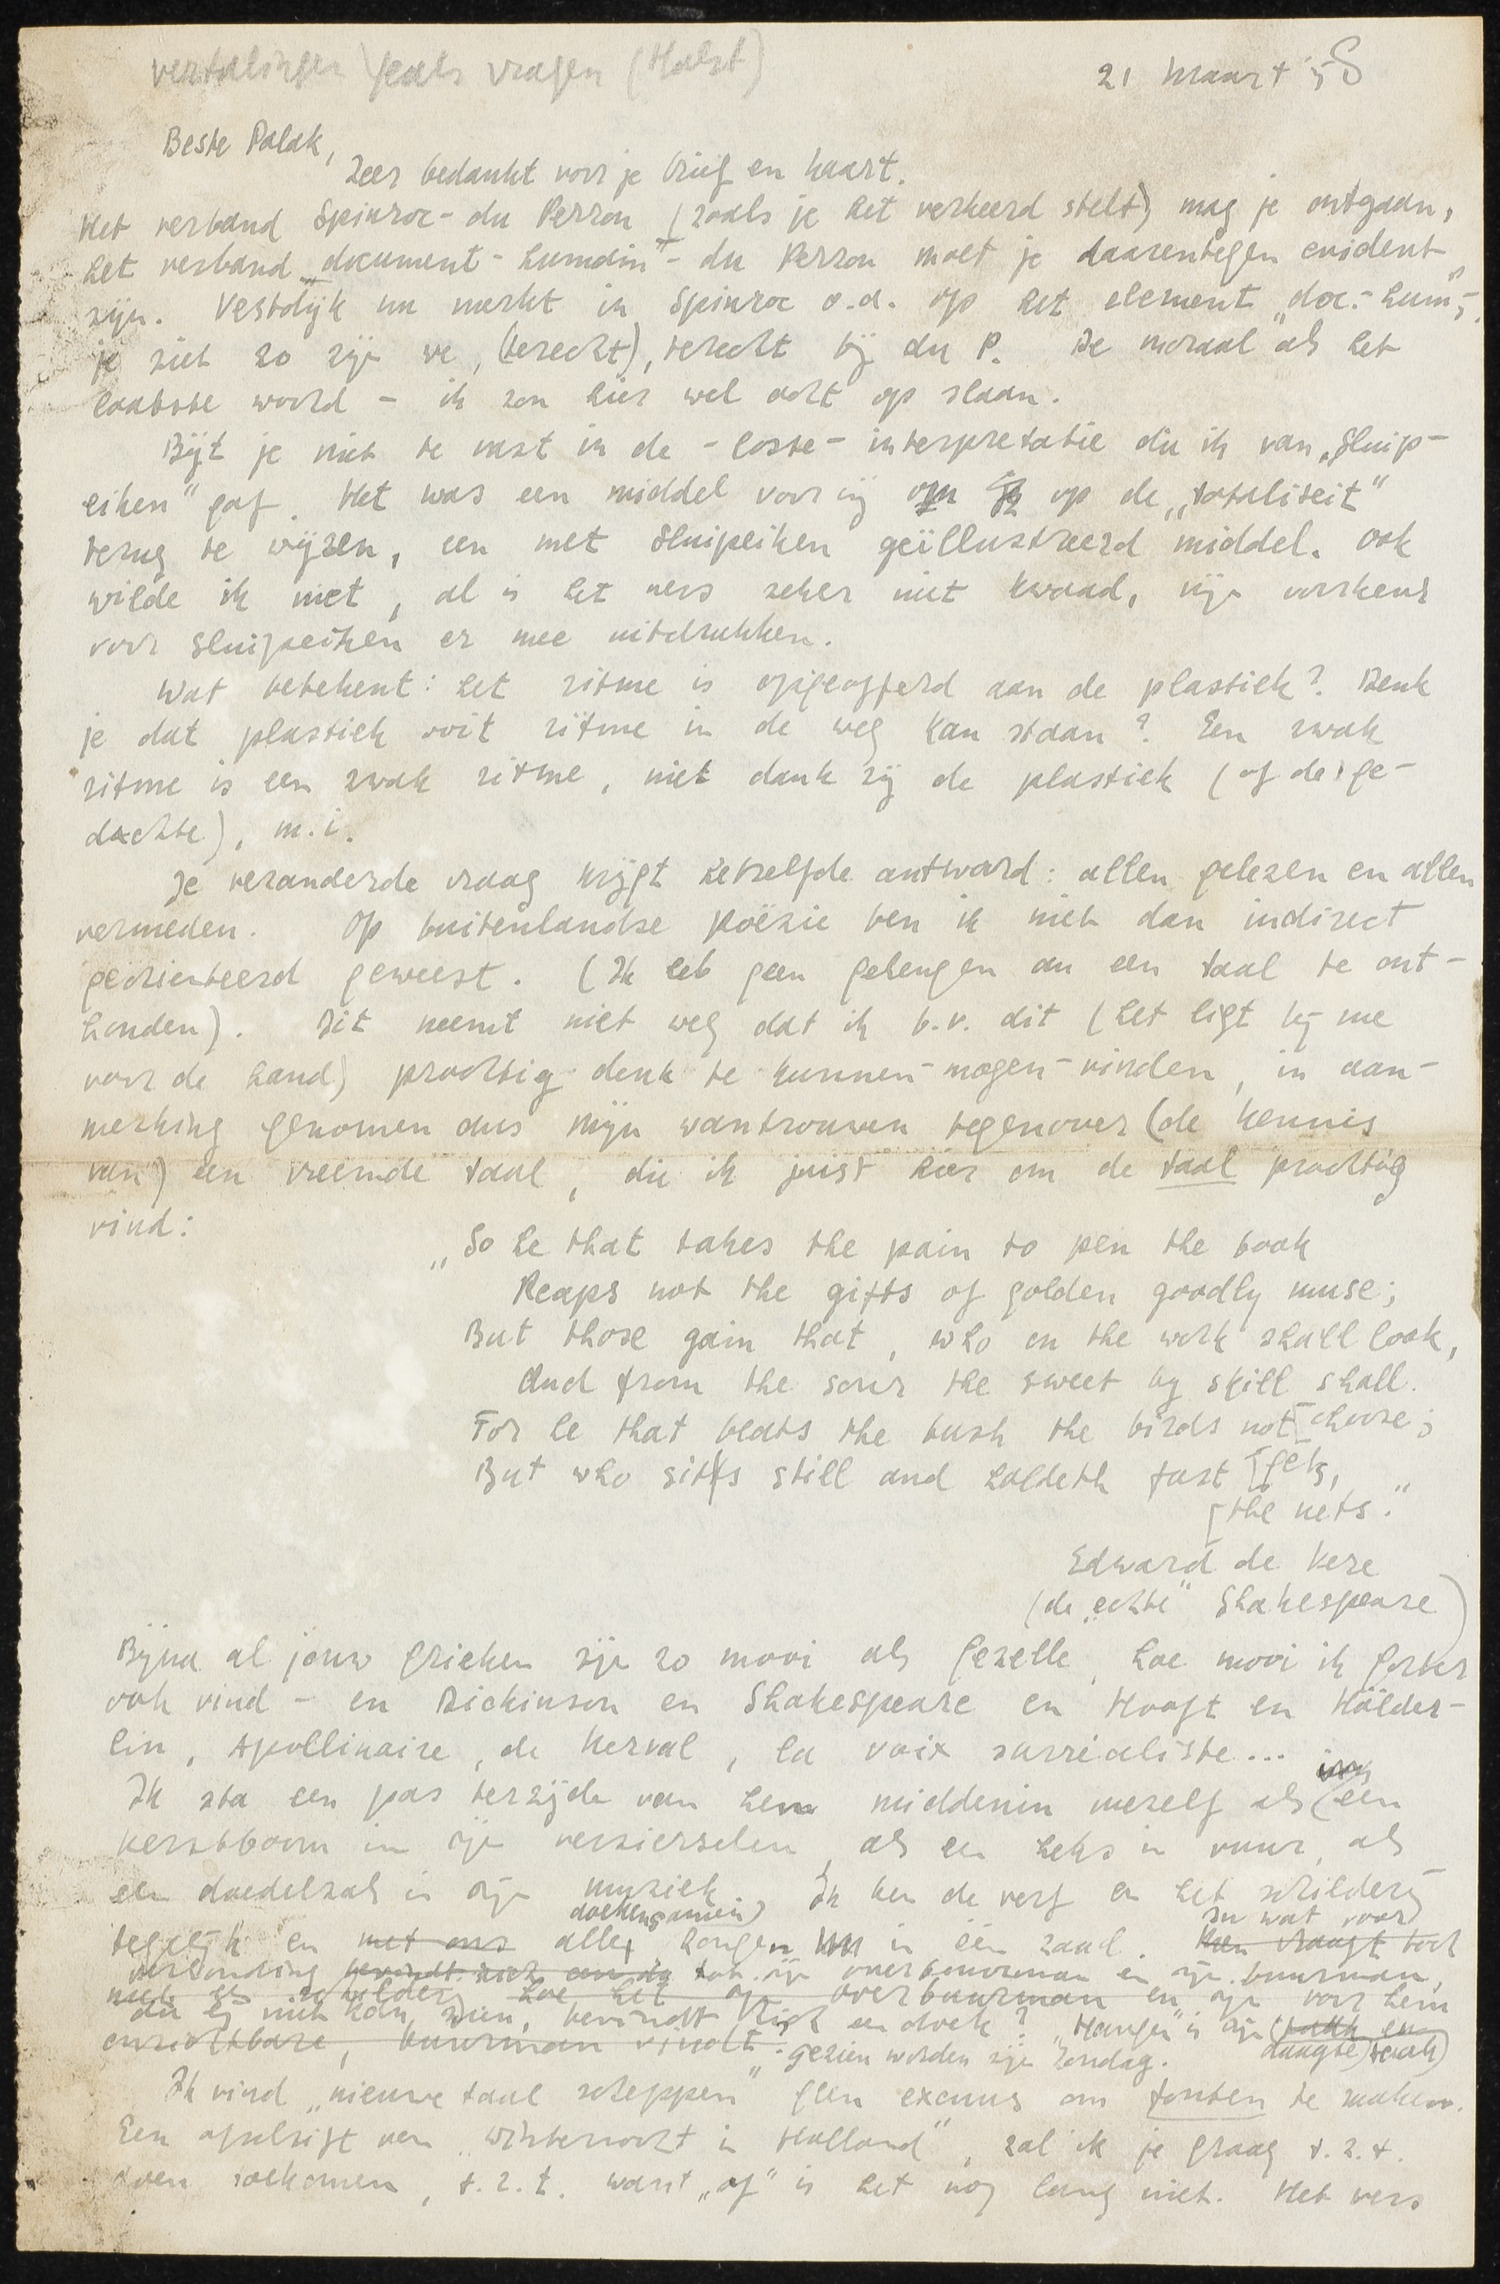 vertalingen vragen (Holst)
21 maart '58
Beste Polak,
Zeer bedankt voor je brief en kaart.
Het verband Spinroc - du Perron (zoals je het verkeerd stelt) mag je ontgaan,
het verband „document-humain" - du Perron moet je daarentegen evident
zijn. Vestdijk nu merkt in Spinroc o.a. op het element „doc.-hum",
je ziet zo zijn we, (terecht), terecht bij du P. De moraal als het
laatste woord - ik zou hier wel acht op slaan.
Bijt je niet te vast in de - losse - interpretatie die ik van „Sluip-
eiken" gaf. Het was een middel voor mij om op de „totaliteit"
terug te wijzen, een met Sluipeiken geïllustreerd middel. Ook
wilde ik niet, al is het vers zeker niet kwaad, mijn voorkeur
voor Sluipeiken er mee uitdrukken.
Wat betekent: het ritme is opgeofferd aan de plastiek? Denk
je dat plastiek ooit ritme in de weg kan staan? Een zwak
ritme is een zwak ritme, niet dank zij de plastiek (of de ge-
dachte), m.i.
Je veranderde vraag krijgt hetzelfde antwoord: allen gelezen en allen
vermeden. Op buitenlandse poëzie ben ik niet dan indirect
georienteerd geweest. (Ik heb geen geheugen om een taal te ont-
houden). Dit neemt niet weg dat ik b.v. dit (het ligt bij me
voor de hand) prachtig denk te kunnen-mogen-vinden, in aan-
merking genomen dus mijn wantrouwen tegenover (de kennis
van) een vreemde taal, die ik juist hier om de taal prachtig
vind:
„So he that takes the pain to pen the book
Reaps not the gifts of golden goodly muse;
But those gain that, who on the work shall look,
And from the sour the sweet by skill shall
[choose;
For he that beats the bush the birds not
[gets,
But who sits still and holdeth fast
[the nets."
Edward de Vere
(de „echte" Shakespeare)
Bijna al jouw Grieken zijn zo mooi als Gezelle, hoe mooi ik Gorter
ook vind - en Dickinson en Shakespeare en Hooft en Hölder-
lin, Apollinaire, de Nerval, la voix surréaliste...
Ik sta een pas terzijde van hen middenin mezelf als een
kerstboom in zijn versierselen, als een heks in vuur, als
een doedelzak in zijn muziek. Ik ken de verf en het schilderij
tegelijk en met ons alle doeken samen hangen in één zaal. In wat voor
verhouding tot zijn overbuurman en zijn buurman,
die hij niet kan zien, bevindt zich een doek? „Hangen" is zijn
onzichtbare, buurman vindt? „gezien worden zijn zondag.
Ik vind „nieuwe taal scheppen" geen excuus om fouten te maken.
Een afschrift van „Winternacht in Holland", zal ik je graag t.z.t.
doen toekomen, t.z.t. want „af" is het nog lang niet. Het vers